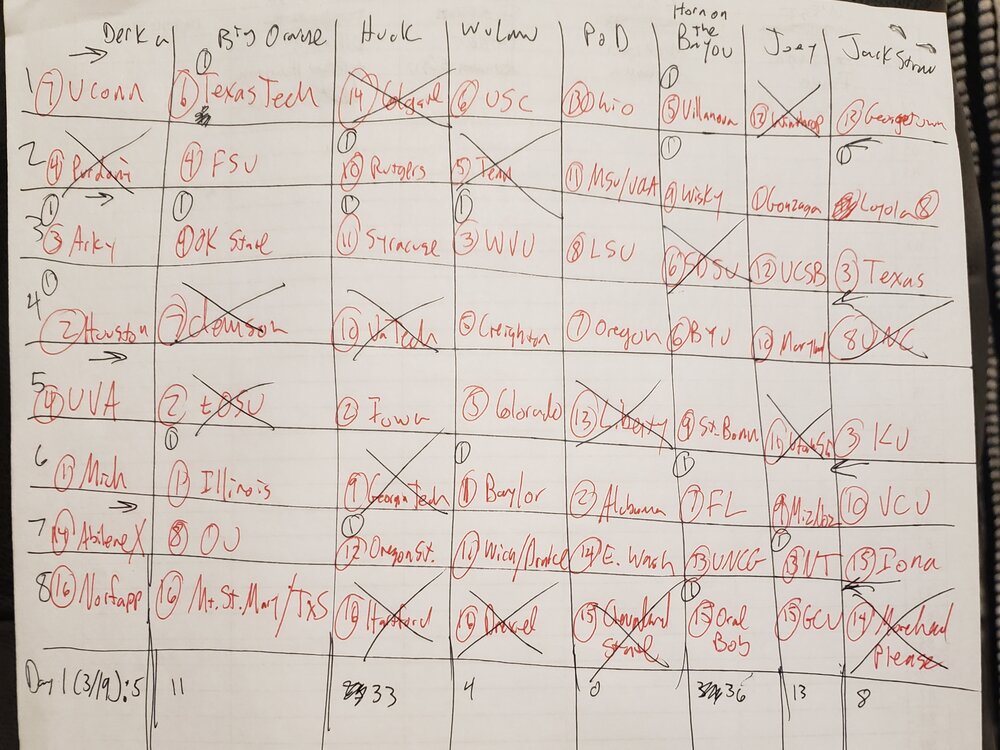 Derka Big Orange Huck Wulaw PoD Horn on the Bayou Joey Jack Straw
1 ⑦ UConn ① ⑥ Texas Tech ⑭ Colgate ⑥ USC ⑬ Ohio ① ⑤ Villanova ⑫ Winthrop ⑫ Georgetown
2 ④ Purdue ④ FSU ① ⑩ Rutgers ⑤ Tenn ⑪ MSU/UCLA ① ⑨ Wisky ① Gonzaga ① Loyola ⑧
3 ① ③ Arky ① ④ OK State ① ⑪ Syracuse ① ③ WVU ⑧ LSU ⑥ SDSU ⑫ UCSB ③ Texas
4 ① ② Houston ⑦ Clemson ⑩ Va Tech ⑤ Creighton ⑦ Oregon ⑥ BYU ⑩ Maryland ⑧ UNC
5 ④ UVA ② tOSU ② Iowa ⑤ Colorado ⑬ Liberty ⑨ St. Bonn ⑪ Utah St ③ KU
6 ① Mich ① ① Illinois ⑨ Georgia Tech ① ① Baylor ② Alabama ① ⑦ FL ⑨ Mizzbz ⑩ VCU
7 ⑭ Abilene X ⑧ OU ① ⑫ Oregon St. ⑪ Wich/Drake ⑭ E. Wash ⑬ UNCG ① ⑬ NT ⑮ Iona
8 ⑯ Norfapp ⑯ Mt. St. Mary/TxS ⑯ Hartford ⑯ Drexel ⑮ Cleveland State ① ⑮ Oral Bob ⑮ GCU ⑭ Morehead Please
Day 1 (3/19): 5 11 33 4 0 36 13 8